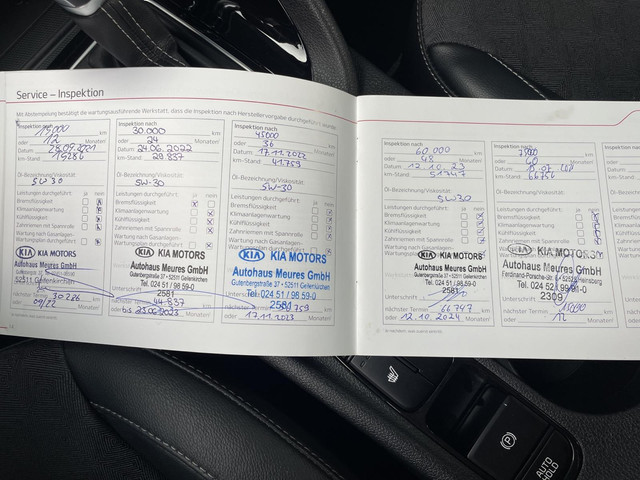 Service – Inspektion
Mit Abstempelung bestätigt die wartungsausführende Werkstatt, dass die Inspektion nach Herstellervorgabe durchgeführt wurde.
Inspektion nach
15000 km
oder 12 Monaten
Datum
km-Stand 15286
Öl-Bezeichnung/Viskosität:
5W30
Leistungen durchgeführt: ja nein
Bremsflüssigkeit
Klimaanlagenwartung
Kühlflüssigkeit
Zahnriemen mit Spannrolle
Wartung nach Gasanlagen-
Wartungsplan durchgeführt
KIA MOTORS
Autohaus Meures GmbH
52511 Geilenkirchen
nächster Termin 30286 km
oder 09/22 Monaten
Inspektion nach
30.000 km
oder 24 Monaten
Datum 24.06.2022
km-Stand: 29.837
Öl-Bezeichnung/Viskosität:
5W-30
Leistungen durchgeführt: ja nein
Bremsflüssigkeit
Klimaanlagenwartung
Kühlflüssigkeit
Zahnriemen mit Spannrolle
Wartung nach Gasanlagen-
Wartungsplan durchgeführt
KIA MOTORS
Autohaus Meures GmbH
Gutenbergstraße 37 • 52511 Geilenkirchen
Tel. 024 51 / 98 59-0
2581
nächster Termin 44.837 km
oder bis 23.06.2023 Monaten
Inspektion nach
45000 km
oder 36 Monaten
Datum 17.11.2022
km-Stand: 41.759
Öl-Bezeichnung/Viskosität:
5W-30
Leistungen durchgeführt: ja nein
Bremsflüssigkeit
Klimaanlagenwartung
Kühlflüssigkeit
Zahnriemen mit Spannrolle
Wartung nach Gasanlagen-
KIA MOTORS
Autohaus Meures GmbH
Gutenbergstraße 37 • 52511 Geilenkirchen
Tel. 024 51 / 98 59-0
2581
nächster Termin
oder 17.11.2023 Monaten
Inspektion nach
60 000 km
oder 48 Monaten
Datum 12.10.23
km-Stand: 51747
Öl-Bezeichnung/Viskosität:
5W30
Leistungen durchgeführt: ja nein
Bremsflüssigkeit
Klimaanlagenwartung
Kühlflüssigkeit
Zahnriemen mit Spannrolle
Wartung nach Gasanlagen-
KIA MOTORS
Autohaus Meures GmbH
Gutenbergstraße 37 • 52511 Geilenkirchen
Tel. 024 51 / 98 59-0
2581
Unterschrift
nächster Termin 66747 km
oder 12.10.2024 Monaten
Inspektion nach
75000 km
oder 60 Monaten
Datum
km-Stand:
Öl-Bezeichnung/Viskosität:
Leistungen durchgeführt: ja nein
Bremsflüssigkeit
Klimaanlagenwartung
Kühlflüssigkeit
Zahnriemen mit Spannrolle
Wartung nach Gasanlagen-
KIA MOTORS
Autohaus Meures GmbH
Tel. 024 52 / 99 91-0
2309
Unterschrift
nächster Termin
oder 12 Monaten
AUTO
HOLD